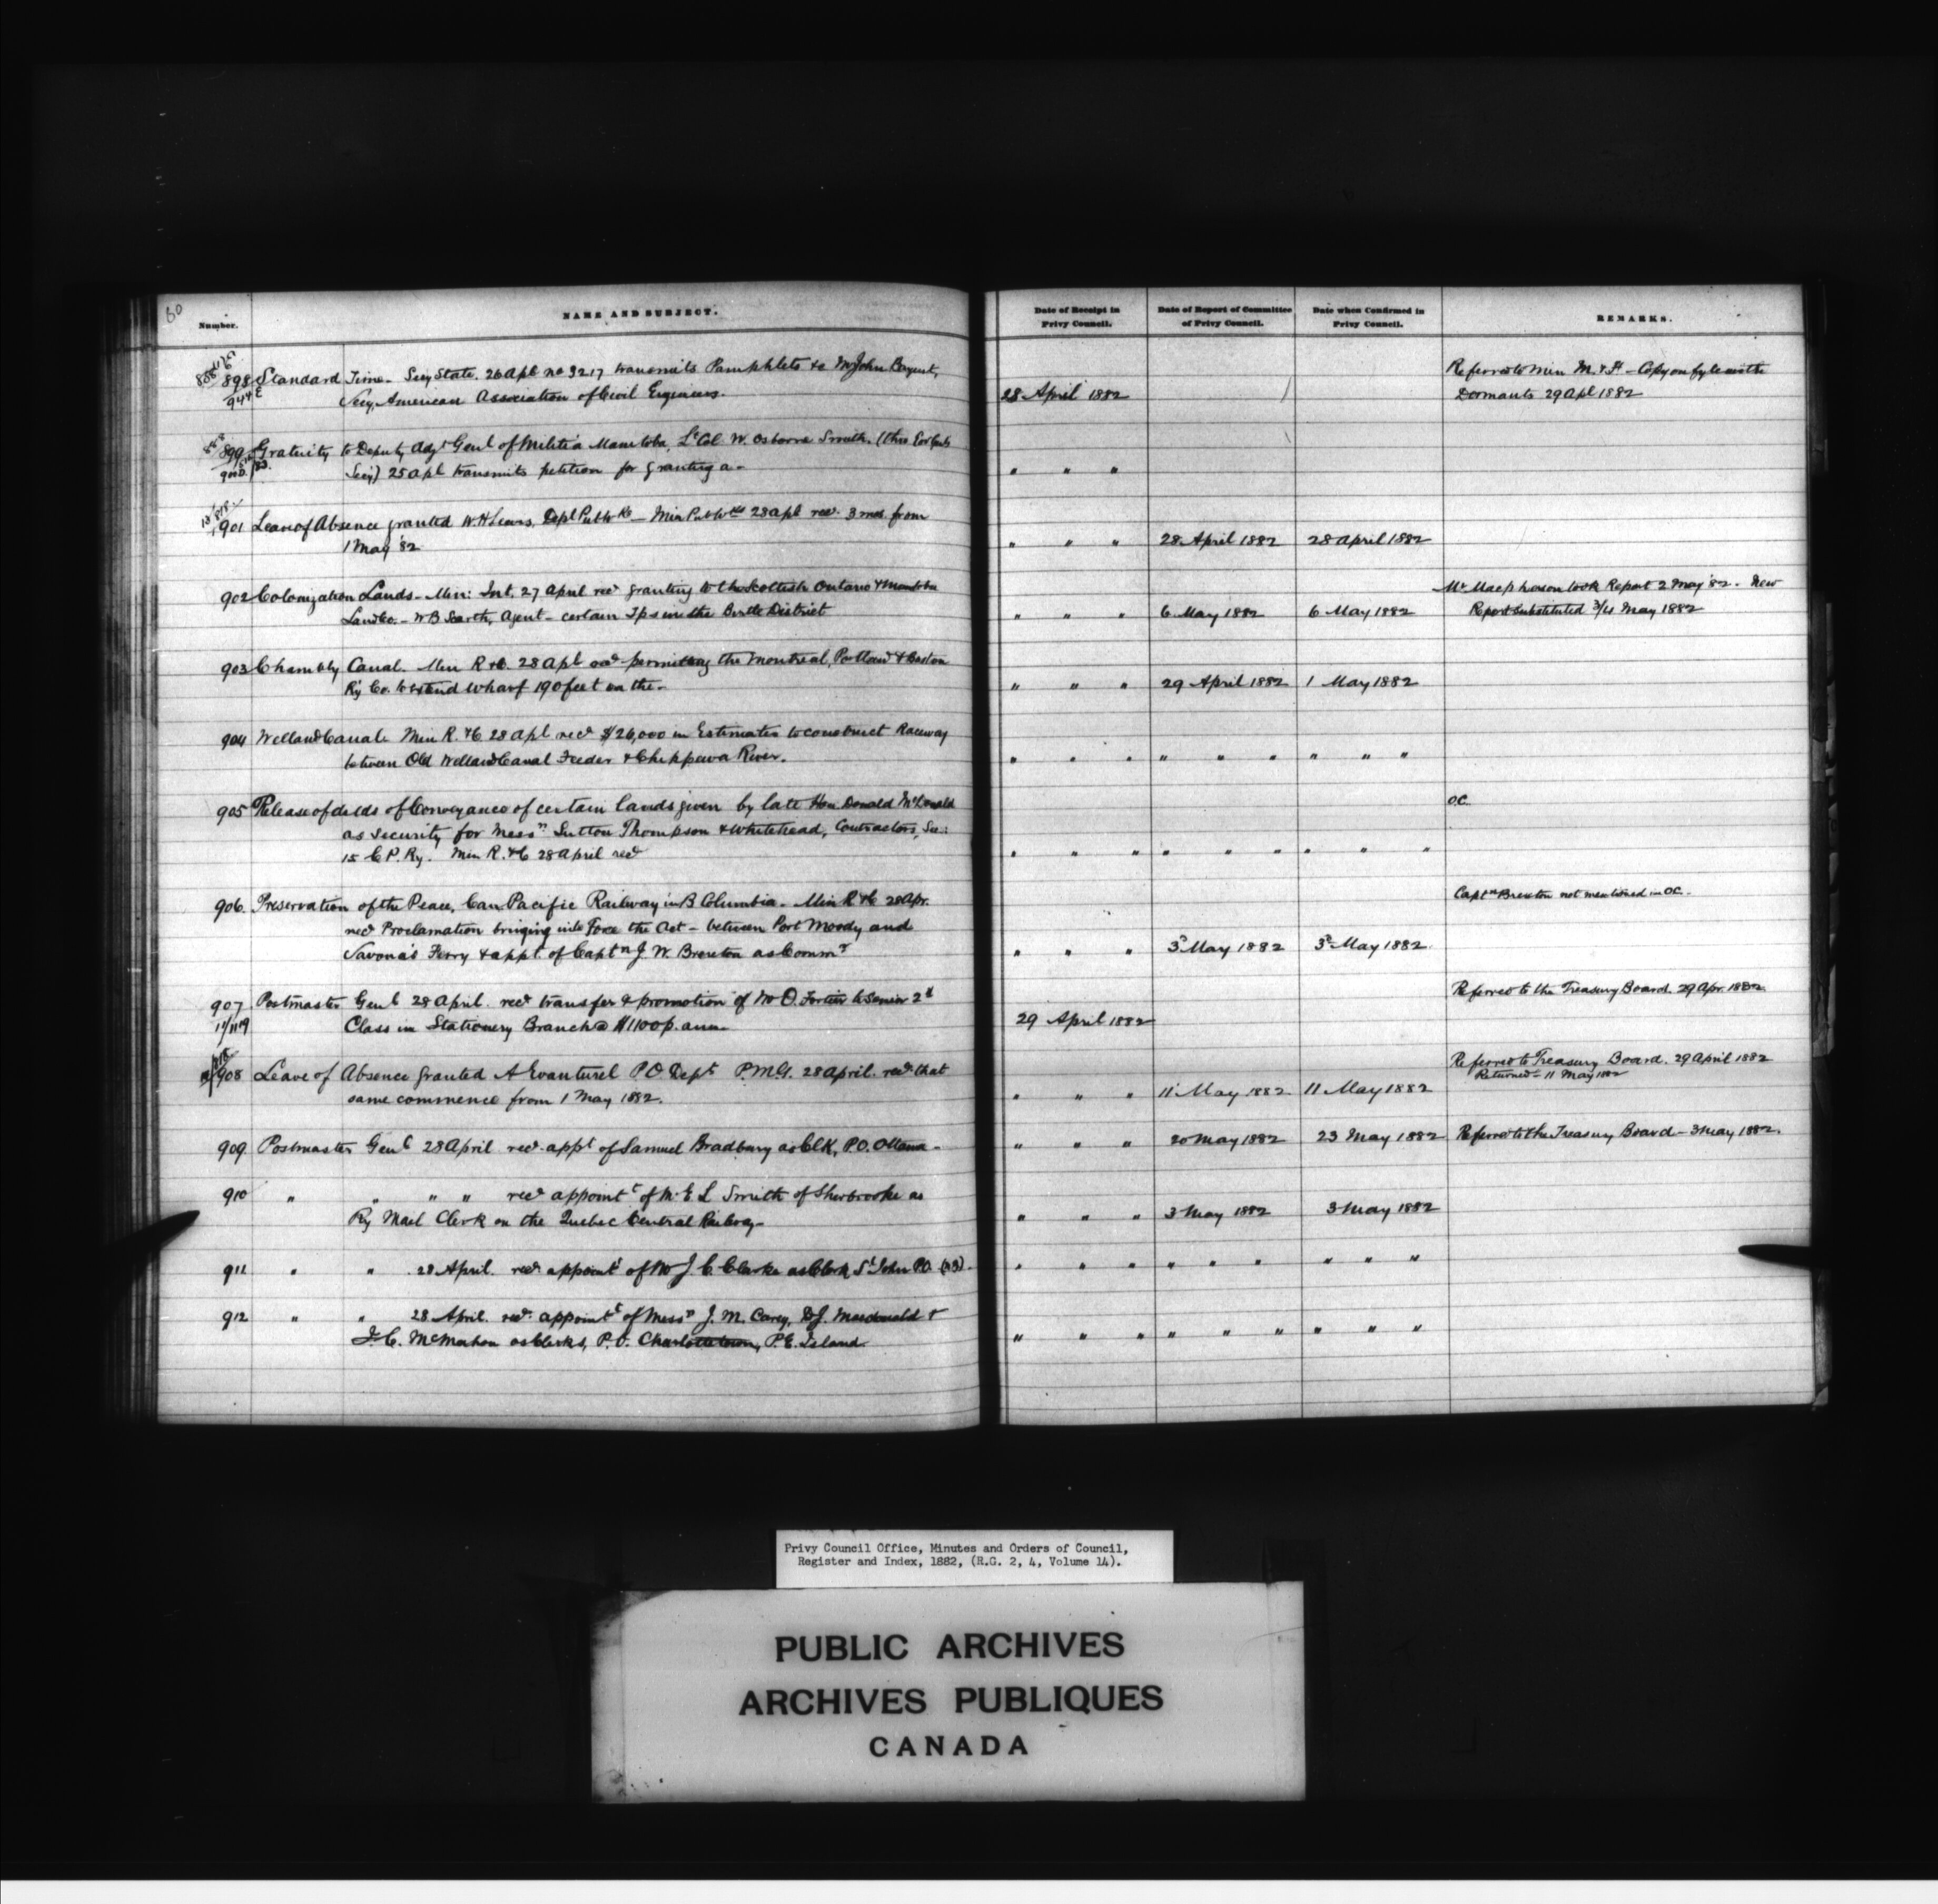 80
Number.
NAME AND SUBJECT.
Date of Receipt in Privy Council.
Date of Report of Committee of Privy Council.
Date when Confirmed in Privy Council.
REMARKS.
898 Standard Time - Secy State. 26 Apl no 3217 transmits Pamphlets &c Mr John Bogert,
944 E Secy. American Association of Civil Engineers. 28 April 1882
Referred to Min M. & F. - Copy on fyle with
Dormants 29 Apl 1882
899 Gratuity to Deputy Adjt Genl of Militia Manitoba, Lt Col W. Osborne Smith. (thro Gov Genls
900 D. Secy) 25 Apl transmits petition for granting a - " " "
901 Leave of Absence granted W. H. Dept Pub Wks - Min Pub Wks 28 Apl recd 3 mos. from
1 May '82 " " " 28 April 1882 28 April 1882
902 Colonization Lands - Min: Int. 27 April recd granting to the Scottish Ontario & Manitoba
Land Co. - W B Scarth, Agent - certain Tps in the Birtle District " " " 6 May 1882 6 May 1882
Mr Macpherson took Report 2 May '82 - New
Report substituted May 1882
903 Chambly Canal. Min R & C. 28 Apl recd permitting the Montreal, Portland & Boston
Ry Co. to extend wharf 190 feet on the - " " " 29 April 1882 1 May 1882
904 Welland Canal. Min R. & C 28 Apl recd $26,000 in Estimates to construct Raceway
between Old Welland Canal Feeder & Chippawa River. " " " " " " " " "
905 Release of deeds of Conveyance of certain lands given by late Hon Donald McDonald O.C.
as security for Messrs Sutton Thompson & Whitehead, Contractors, Sec:
15 C P. Ry. Min R. & C 28 April recd " " " " " " " " "
906. Preservation of the Peace, Can. Pacific Railway in B Columbia - Min R & C 28 Apr. Captn Brereton not mentioned in O.C.
recd Proclamation bringing into Force the Act - between Port Moody and
Savona's Ferry & appt of Captn J. W. Brereton as Commr " " " 3 May 1882 3 May 1882
907 Postmaster Genl 28 April recd transfer & promotion of Mr O. Fortier to Senior 2d Referred to the Treasury Board. 29 Apr 1882
11/1119 Class in Stationery Branch @ $1100 p. ann - 29 April 1882
908 Leave of Absence granted A Evanturel P O Dept P.M.G. 28 April recd that Referred to Treasury Board. 29 April 1882
Returned - 11 May 1882
same commence from 1 May 1882. " " " 11 May 1882 11 May 1882
909 Postmaster Genl 28 April recd appt of Samuel Bradbury as Clk, P.O. Ottawa - " " " 20 May 1882 23 May 1882 Referred to the Treasury Board - 3 May 1882.
910 " " " " recd appointt of Mr E L Smith of Sherbrooke as
Ry Mail Clerk on the Quebec Central Railway - " " " 3 May 1882 3 May 1882
911 " " 28 April recd appointt of Mr J. C. Clarke as Clerk St John P.O. (N B) - " " " " " " " " "
912 " " 28 April. recd appointt of Messrs J. M. Carey, D. J. Macdonald &
J. C. McMahon as Clerks, P. O. Charlottetown, P.E. Island " " " " " " " " "
Privy Council Office, Minutes and Orders of Council,
Register and Index, 1882, (R.G. 2, 4, Volume 14).
PUBLIC ARCHIVES
ARCHIVES PUBLIQUES
CANADA